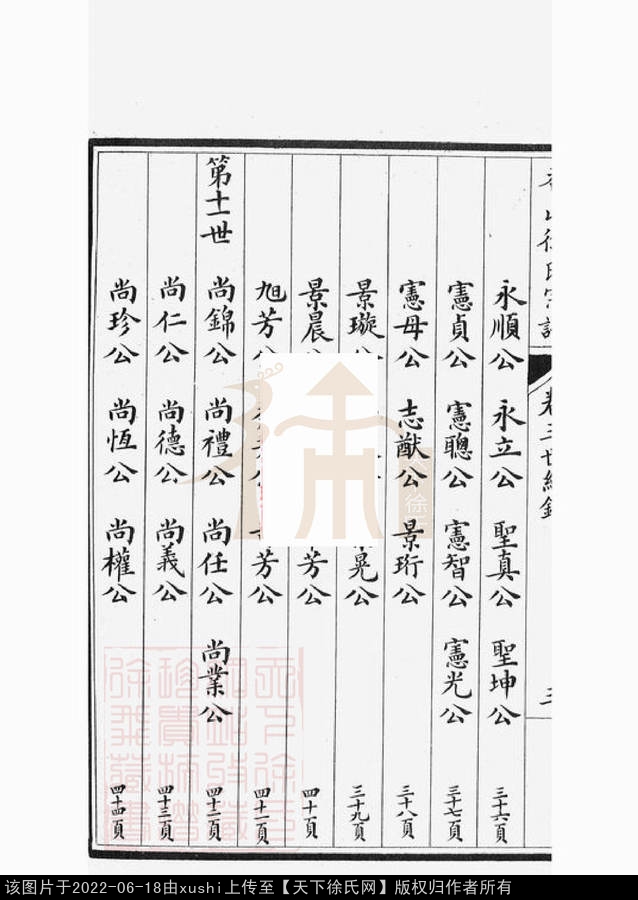 山徐氏宗譜 卷三世紀錄 三
永順公 永立公 聖真公 聖坤公 三十六頁
憲貞公 憲聰公 憲智公 憲光公 三十七頁
憲母公 志猷公 景珩公 三十八頁
景璇公 晃公 三十九頁
景晨公 芳公 四十頁
旭芳公 芳公 四十一頁
第十一世 尚錦公 尚禮公 尚任公 尚業公 四十二頁
尚仁公 尚德公 尚義公 四十三頁
尚珍公 尚恆公 尚權公 四十四頁
该图片于2022-06-18由xushi上传至【天下徐氏网】版权归作者所有